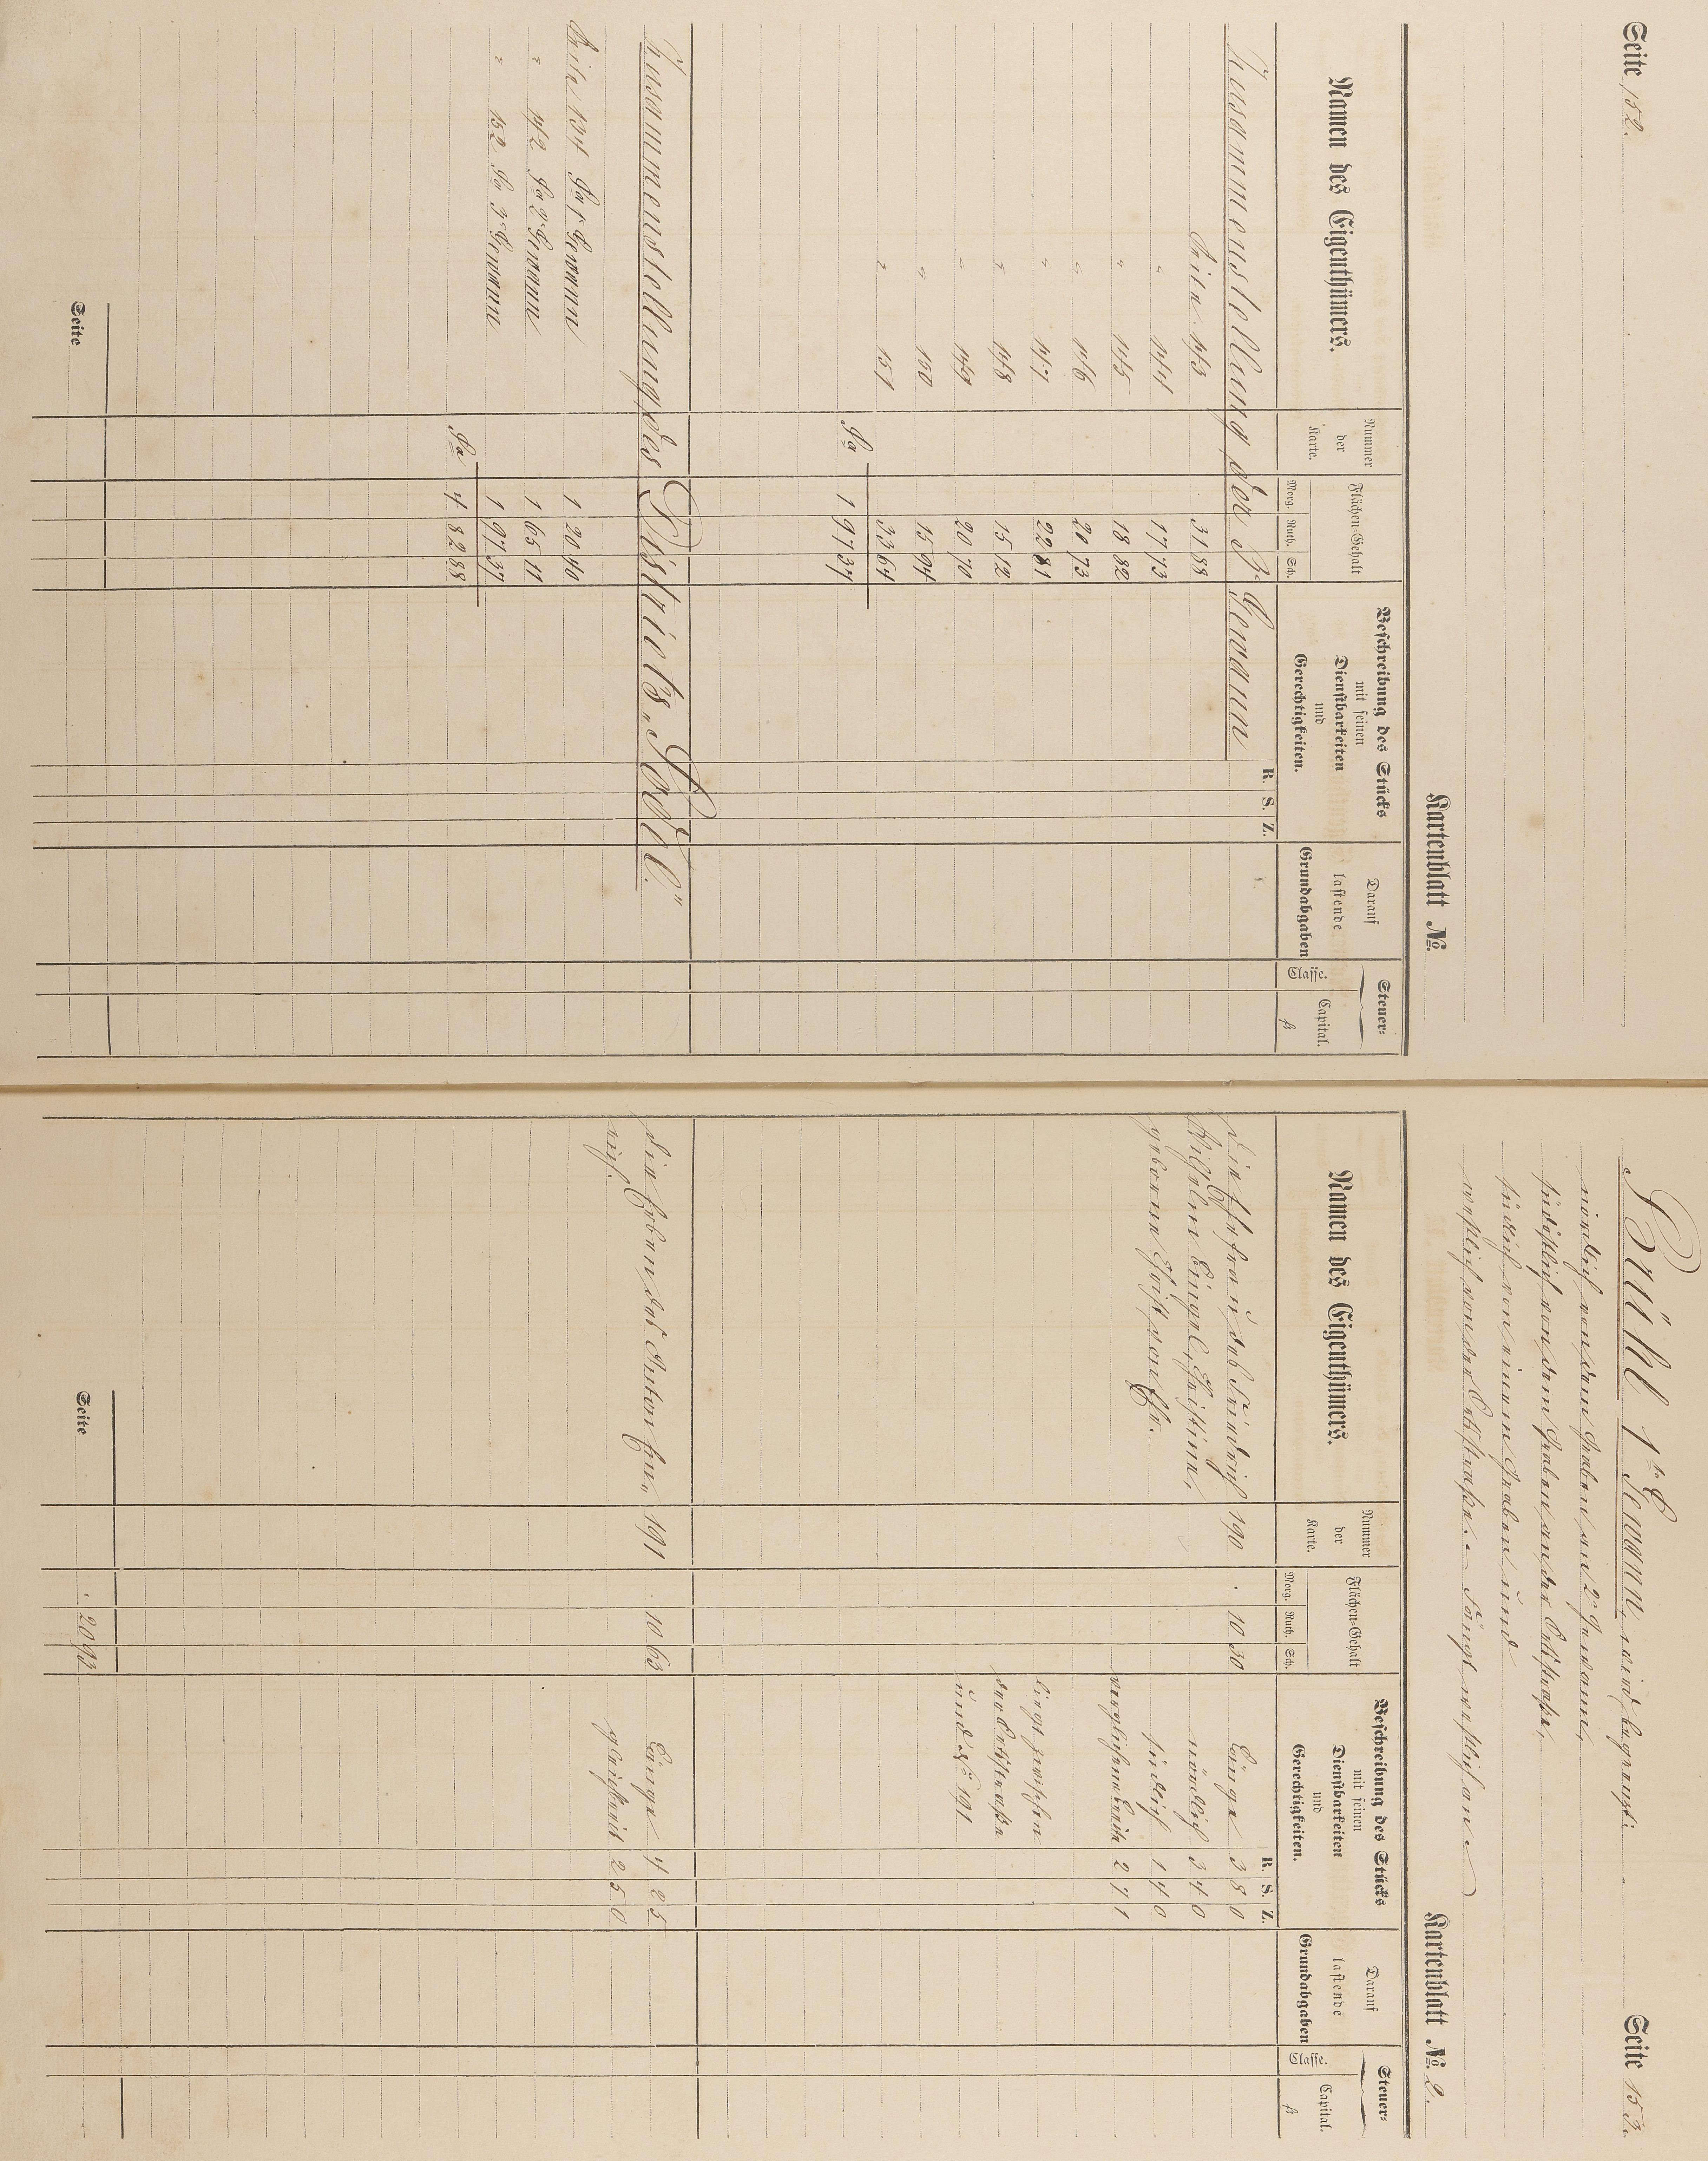 Seite 152.
Kartenblatt No.
Namen des Eigenthümers.
Nummer der Karte.
Flächen-Gehalt
Morg. Ruth. Sch.
Beschreibung des Stücks
mit seinen
Dienstbarkeiten
und
Gerechtigkeiten.
R. S. Z.
Darauf
lastende
Grundabgaben
Steuer-
Classe. Capital.
fl
Zusammenstellung der 3t Gewann
Seite 143 31 88
" 144 17 73
" 145 18 82
" 146 20 73
" 147 22 81
" 148 15 12
" 149 20 70
" 150 15 94
" 151 33 61
Sa 1 97 34
Zusammenstellung des Districts „Södel."
Seite 134 Sa 1t Gewann 1 20 40
" 142 Sa 2t Gewann 1 65 11
" 152 Sa 3t Gewann 1 97 37
Sa 4 82 88
Seite
Seite 153.
Brühl 1te Gewann, wird begrenzt:
nördlich von dem Graben an 2r Gewann,
südöstlich von dem Graben an der Ortsstraße,
südlich von einem Graben und
westlich von der Ortsstraße. - Fängt westlich an.
Kartenblatt No. 2.
Namen des Eigenthümers.
Nummer der Karte.
Flächen-Gehalt
Morg. Ruth. Sch.
Beschreibung des Stücks
mit seinen
Dienstbarkeiten
und
Gerechtigkeiten.
R. S. Z.
Darauf
lastende
Grundabgaben
Steuer-
Classe. Capital.
fl
Die Ehefrau des Friedrich 190 . 10 30 Länge 3 8 0
Wilhelm Eingel, Christine, nördlich 3 4 0
geborne Christ von Hr. südlich 1 4 0
verglichene Breite 2 7 1
liegt zwischen
der Ortsstraße
und No 191
Die Erben des Anton 191 10 63 Länge 4 2 5
gleichbreit 2 5 0
Seite . 20 93